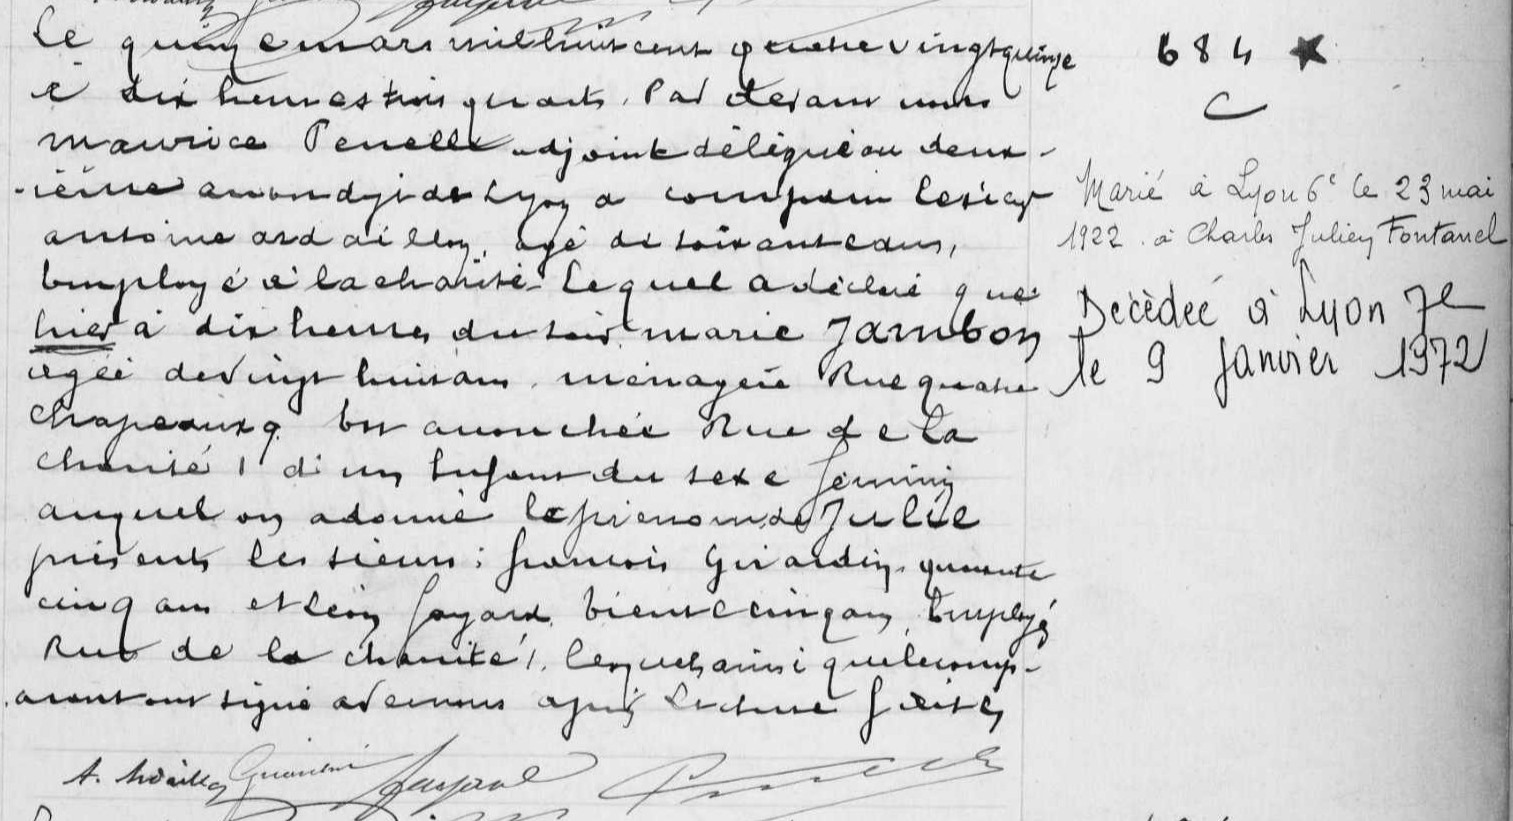 Le quinze mars mil huit cent quatre vingt quinze
à dix heures trois quarts. Par devant nous
Maurice Penelle adjoint délégué au deux-
-ième arrondist de Lyon a comparu le sieur
antoine ardaillon, agé de soixante ans,
Employé à la charité. Lequel a déclaré que
hier à dix heures du soir marie Jambon
agée de vingt huit ans. ménagère Rue quatre
chapeaux 9. Est accouchée Rue de la
charité 1 d'un Enfant du sexe féminin
auquel on a donné le prénom de Julie
présents les sieurs : francois Girardin. quarante
cinq ans et Léon fayard. trente cinq ans, Employés
Rue de la charité 1. lesquels ainsi que le comp-
arant ont signé avec nous après Lecture faite
A. Ardaillon Girardin fayard
684
C
Marié à Lyon 6e le 23 mai
1922. à Charles Julien Fontanel
Décèdée à Lyon 7e
le 9 Janvier 1972